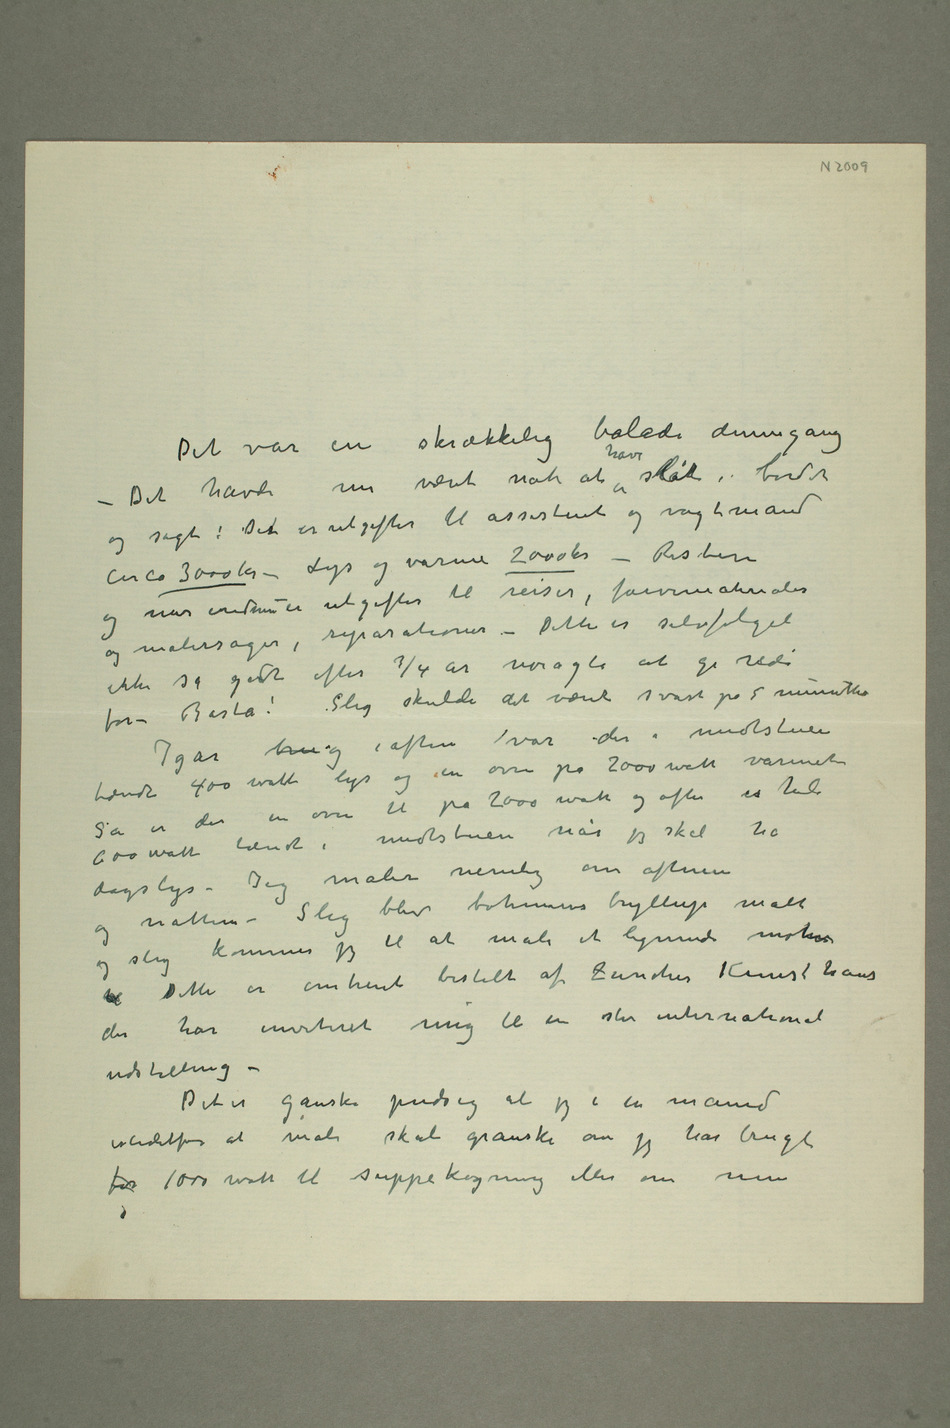 N 2009
Det var en skrækkelig balade dennegang
– Det havde nu været nok at have slåt i bordet
og sagt: Det er utgifter til assistent og vagtmand
circa 3000 kr – Lys og varme 2000 kr – Resten
og mer endnu er utgifter til reiser, farvematerialer
og malersager, reparationer – Dette er selvfølgelig
ikke så godt efter 3/4 år nøiagtig at gi rede
for – Basta! Slig skulde det været svart på 5 minutter
Igår og iaften var der i midtstuen
tændt 400 watt lys og en ovn på 2000 watt varmet
Så er der en ovn til på 2000 watt og ofte er hele
600 watt tændt i midtstuen når jeg skal ha
dagslys – Jeg maler nemlig om aftenen
og natten – Slig blev bohemens bryllup malt
og slig kommer jeg til at male et lignende motiv
Dette er omtrent bestilt af Züricher Kunsthaus
der har inviteret mig til en stor international
udstilling –
Det er ganske pudsig at jeg i en måned
istedetfor at male skal granske om jeg har brugt
for 1000 watt til suppekogning eller om min